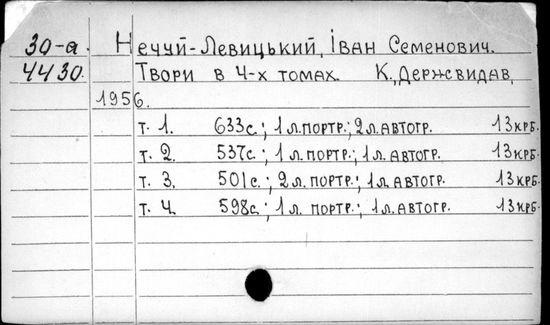 30-а. Нечуй-Левицький, Іван Семенович.
4430. Твори в 4-х томах. К., Держвидав,
1956.
т. 1. 633с.; 1 л. портр.; 2 л. автогр. 13 крб.
т. 2. 537с.; 1 л. портр.; 1 л. автогр. 13 крб.
т. 3. 501с.; 2 л. портр.; 1 л. автогр. 13 крб.
т. 4. 598с.; 1 л. портр.; 1 л. автогр. 13 крб.